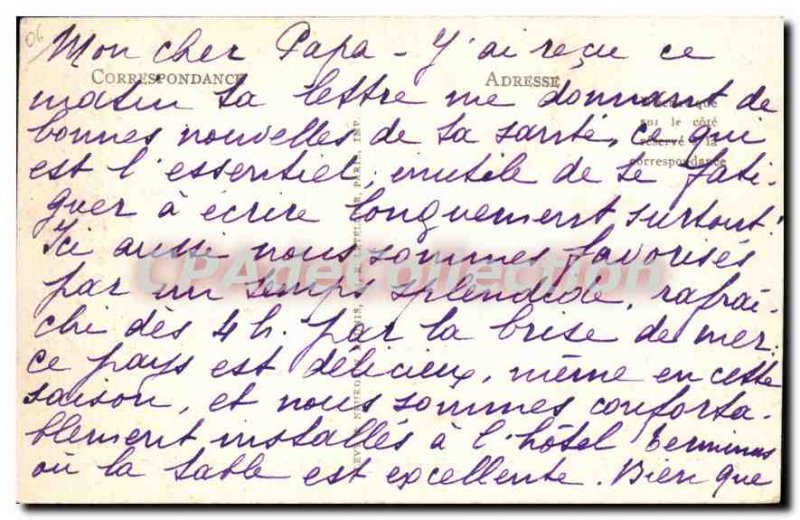 06
Mon cher Papa - J'ai reçu ce
CORRESPONDANCE ADRESSE
matin ta lettre me donnant de
bonnes nouvelles de ta santé, ce qui
sur le côté
réservé à la
correspondance
est l'essentiel; inutile de te fati-
guer à écrire longuement surtout!
Ici aussi nous sommes favorisés
CPADeCollection
par un temps splendide, rafraî-
chi dès 4 h. par la brise de mer.
ce pays est délicieux, même en cette
saison, et nous sommes conforta-
blement installés à l'hôtel Terminus
où la table est excellente. Bien que